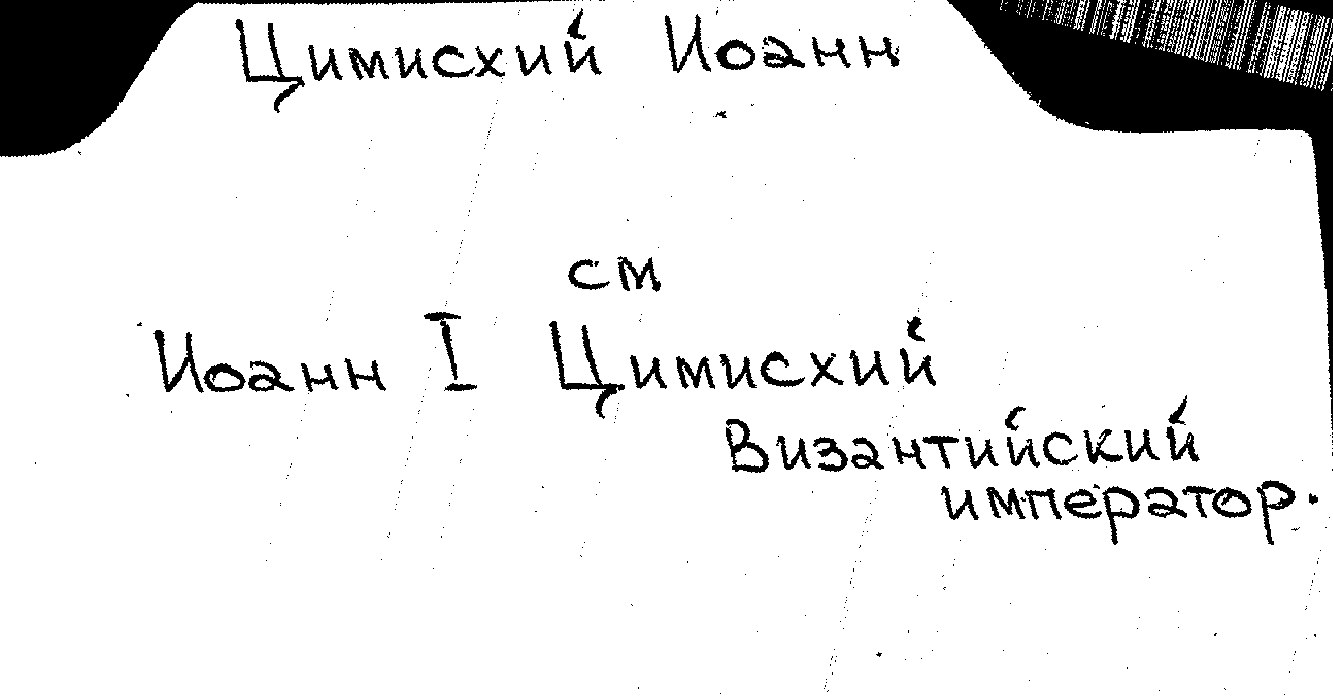 Цимисхий Иоанн
см
Иоанн I Цимисхий
Византийский
император.